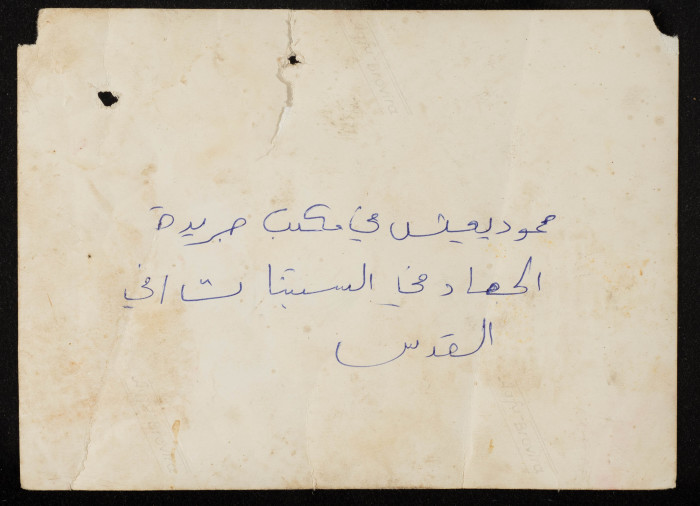 محمود يعيش في مكتب جريدة
الجهاد في الستينات في
القدس